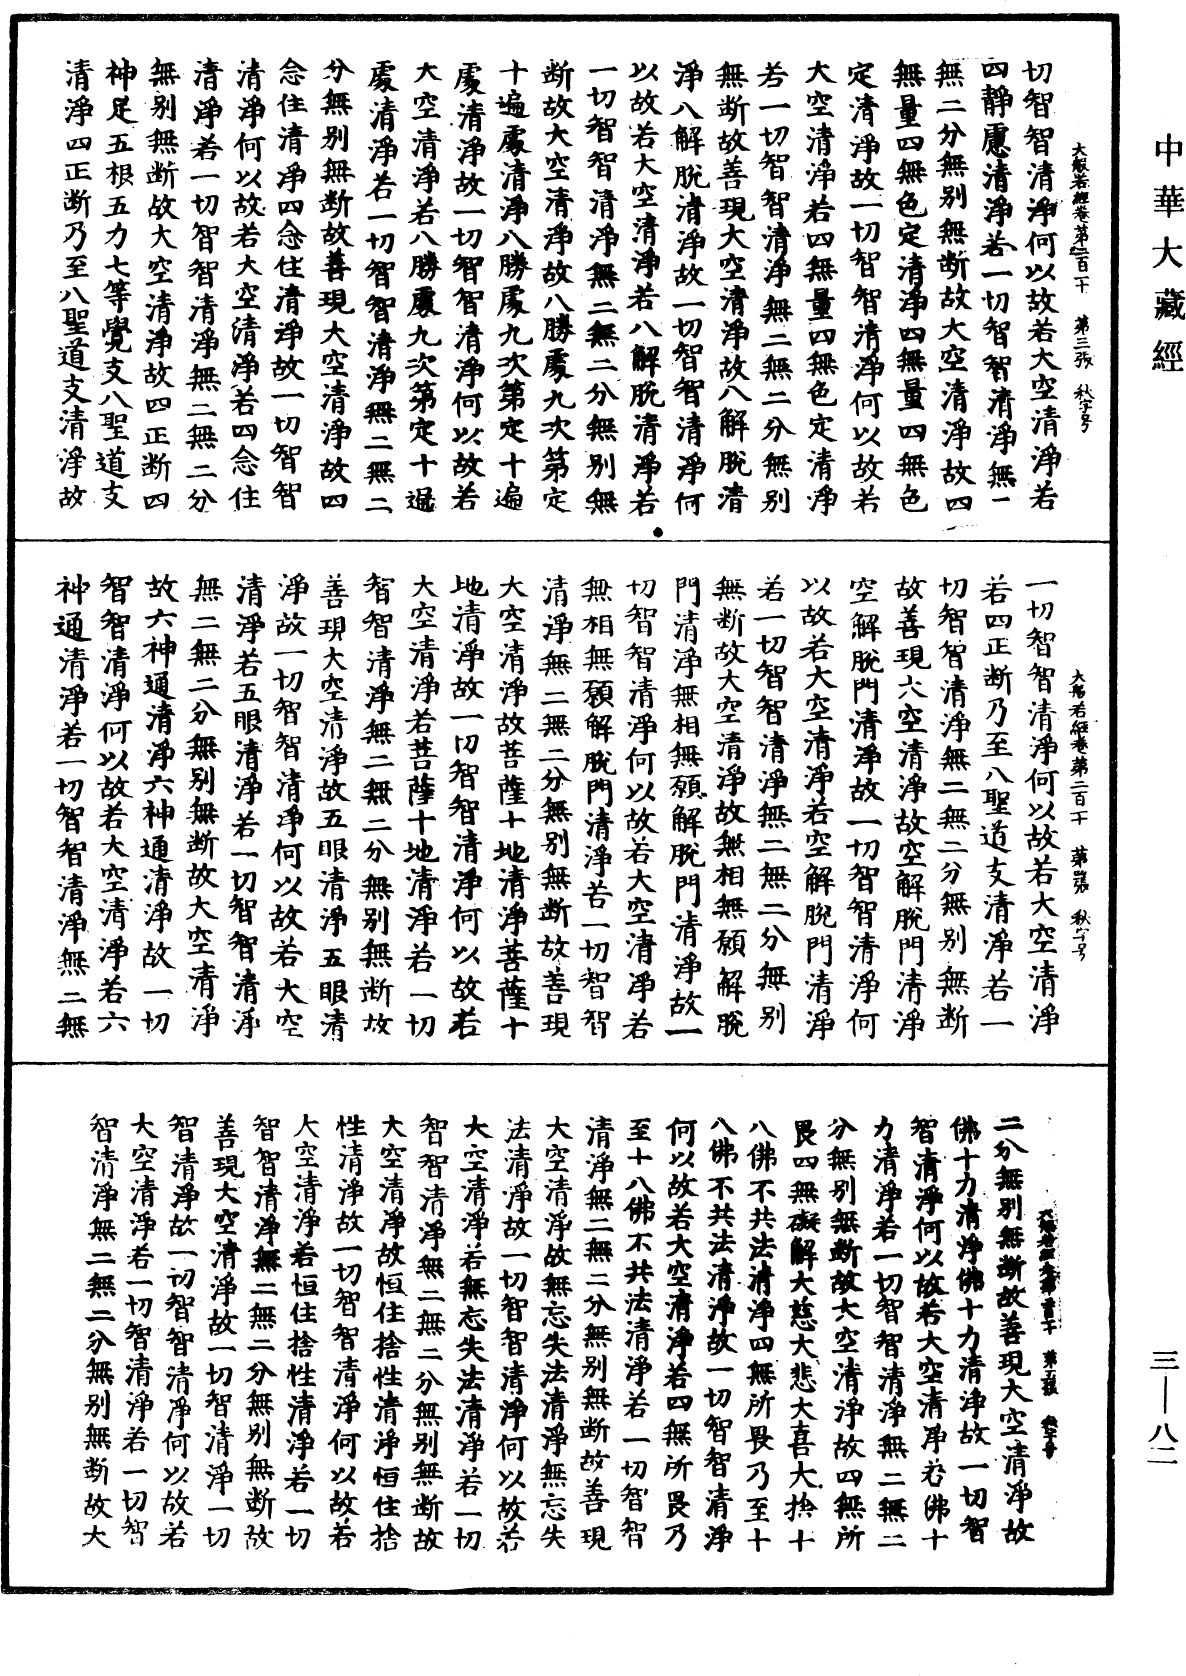 中華大藏經
大般若經卷第二百一十　第三張　秋字号
切智智清淨何以故若大空清淨若
四靜慮清淨若一切智智清淨無二
無二分無別無斷故大空清淨故四
無量四無色定清淨四無量四無色
定清淨故一切智智清淨何以故若
大空清淨若四無量四無色定清淨
若一切智智清淨無二無二分無別
無断故善現大空清淨故八解脫清
淨八解脫清淨故一切智智清淨何
以故若大空清淨若八解脫清淨若
一切智智清淨無二無二分無別無
断故大空清淨故八勝處九次第定
十遍處清淨八勝處九次第定十遍
處清淨故一切智智清淨何以故若
大空清淨若八勝處九次第定十遍
處清淨若一切智智清淨無二無二
分無別無断故善現大空清淨故四
念住清淨四念住清淨故一切智智
清淨何以故若大空清淨若四念住
清淨若一切智智清淨無二無二分
無別無断故大空清淨故四正断四
神足五根五力七等覺支八聖道支
清淨四正断乃至八聖道支清淨故
大般若經卷第二百一十　第四張　秋字号
一切智智清淨何以故若大空清淨
若四正断乃至八聖道支清淨若一
切智智清淨無二無二分無別無断
故善現六空清淨故空解脫門清淨
空解脫門清淨故一切智智清淨何
以故若大空清淨若空解脫門清淨
若一切智智清淨無二無二分無別
無断故大空清淨故無相無願解脫
門清淨無相無願解脫門清淨故一
切智智清淨何以故若大空清淨若
無相無願解脫門清淨若一切智智
清淨無二無二分無別無断故善現
大空清淨故菩薩十地清淨菩薩十
地清淨故一切智智清淨何以故若
大空清淨若菩薩十地清淨若一切
智智清淨無二無二分無別無断故
善現大空清淨故五眼清淨五眼清
淨故一切智智清淨何以故若大空
清淨若五眼清淨若一切智智清淨
無二無二分無別無断故大空清淨
故六神通清淨六神通清淨故一切
智智清淨何以故若大空清淨若六
神通清淨若一切智智清淨無二無
二分無別無断故善現大空清淨故
佛十力清淨佛十力清淨故一切智
智清淨何以故若大空清淨若佛十
力清淨若一切智智清淨無二無二
分無別無断故大空清淨故四無所
畏四無礙解大慈大悲大喜大捨十
八佛不共法清淨四無所畏乃至十
八佛不共法清淨故一切智智清淨
何以故若大空清淨若四無所畏乃
至十八佛不共法清淨若一切智智
清淨無二無二分無別無断故善現
大空清淨故無忘失法清淨無忘失
法清淨故一切智智清淨何以故若
大空清淨若無忘失法清淨若一切
智智清淨無二無二分無別無断故
大空清淨故恒住捨性清淨恒住捨
性清淨故一切智智清淨何以故若
大空清淨若恒住捨性清淨若一切
智智清淨無二無二分無別無断故
善現大空清淨故一切智清淨一切
智清淨故一切智智清淨何以故若
大空清淨若一切智清淨若一切智
智清淨無二無二分無別無断故大
三—八二